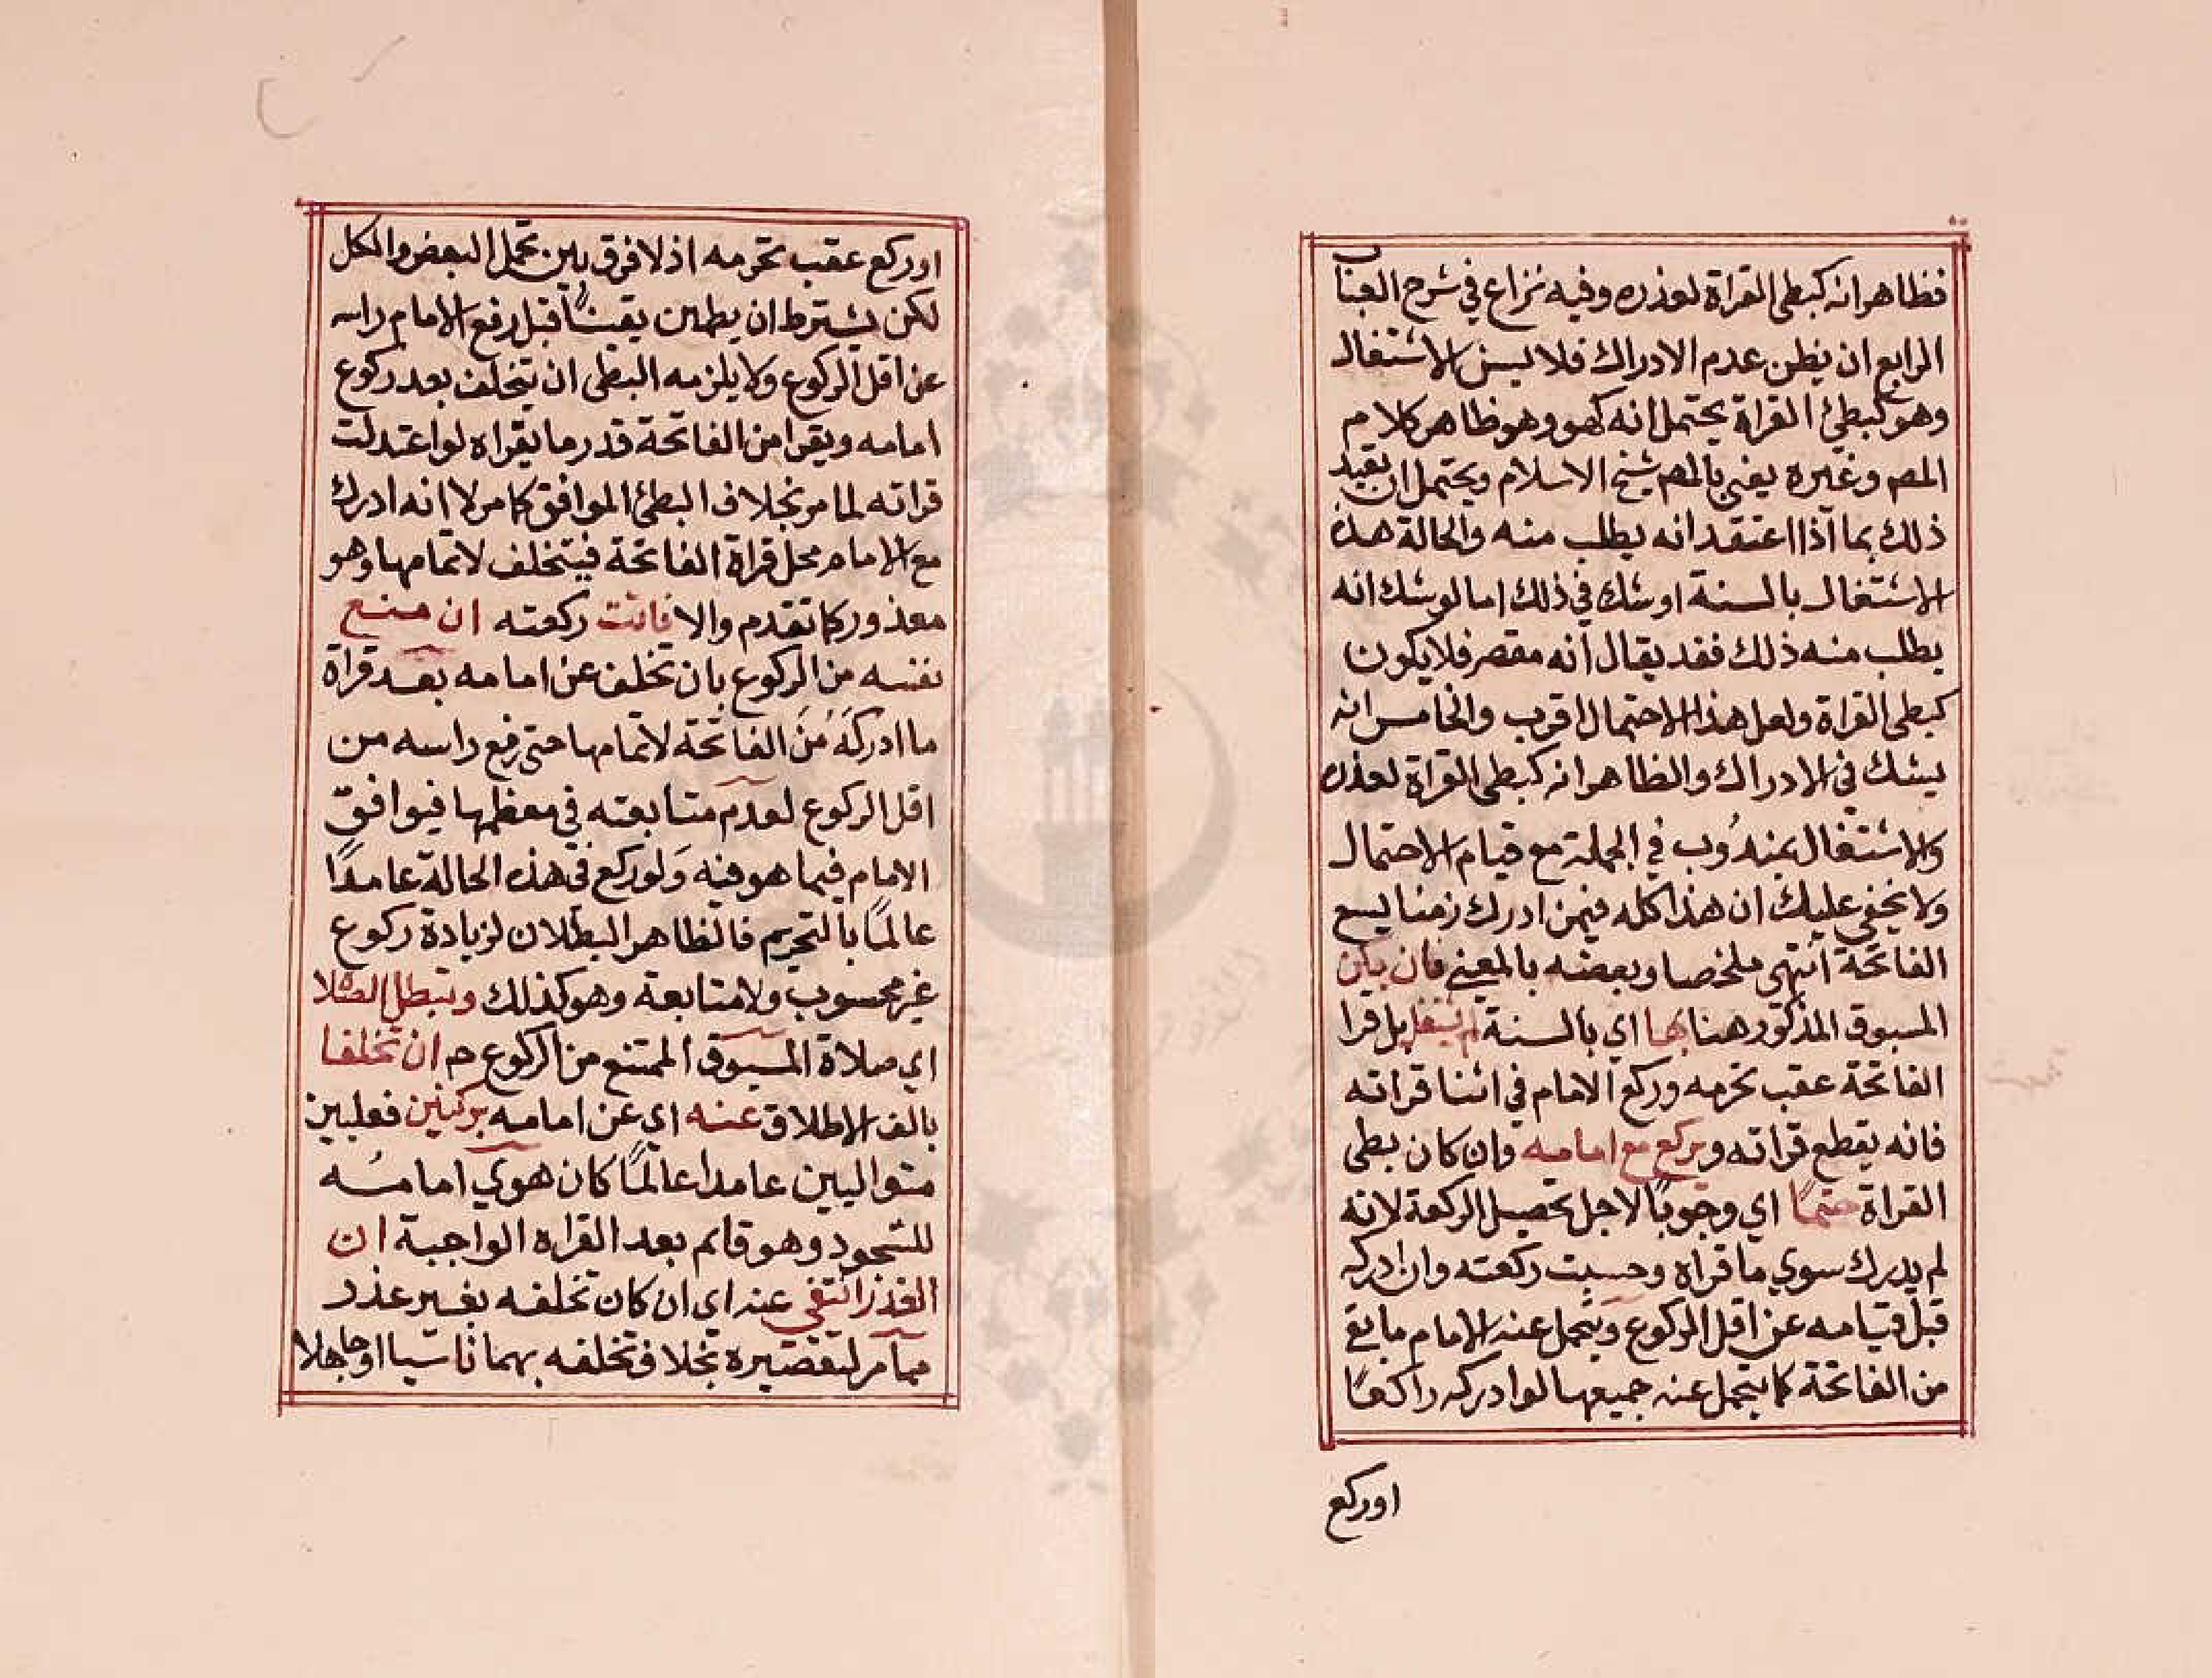 فظاهر انه كبطى القراة لعذره وفيه نزاع في شرح العباب
الرابع ان يظن عدم الادراك فلا يسن الاشتغال
وهو كبطئ القراة يحتمل انه كهو وهو ظاهر كلام
المصم وغيره يعني بالمصم شيخ الاسلام ويحتمل ان يقيد
ذلك بما اذا اعتقد انه يطلب منه والحالة هذه
الاشتغال بالسنة او شك في ذلك اما لو شك انه
يطلب منه ذلك فقد يقال انه مقصر فلا يكون
كبطى القراة ولعل هذا الاحتمال اقرب والخامس انه
يشك في الادراك والظاهر انه كبطى القراة لعذره
والاشتغال بمندوب في الجملة مع قيام الاحتمال
ولا يخفى عليك ان هذا كله فيمن ادرك زمنا يسع
الفاتحة انتهى ملخصا وبعضه بالمعنى فان يكن
المسبوق المذكور هنا بها اي بالسنة لم يشتغل بل قرا
الفاتحة عقب تحرمه وركع الامام في اثنا قراته
فانه يقطع قراته ويركع مع امامه وان كان بطى
القراة حتما اي وجوبا لاجل تحصيل الركعة لانه
لم يدرك سوي ما قراه وحسبت ركعته وان ادركه
قبل قيامه عن اقل الركوع ويتحمل عنه الامام ما بقي
من الفاتحة كما يتحمل عنه جميعها لو ادركه راكعا
او ركع
او ركع عقب تحرمه اذ لا فرق بين تحمل البعض والكل
لكن يشترط ان يطمين يقينا قبل رفع الامام راسه
عن اقل الركوع ولا يلزمه البطى ان يتخلف بعد ركوع
امامه ويقرا من الفاتحة قدر ما يقراه لو اعتدلت
قراته لما مر بخلاف البطئ الموافق كما مر لا انه ادرك
مع الامام محل قراة الفاتحة فيتخلف لاتمامها وهو
معذور كما تقدم والا فاتت ركعته ان منع
نفسه من الركوع بان تخلف عن امامه بعد قراة
ما ادركه من الفاتحة لاتمامها حتى رفع راسه من
اقل الركوع لعدم متابعته في معظمها فيوافق
الامام فيما هو فيه ولو ركع في هذه الحالة عامدا
عالما بالتحريم فالظاهر البطلان لزيادة ركوع
غير محسوب ولا متابعة وهو كذلك وتبطل الصلا
اي صلاة المسبوق الممتنع من الركوع ح ان تخلفا
بالف الاطلاق عنه اي عن امامه بركنين فعليين
متواليين عامدا عالما كان هوي امامه
للسجود وهو قايم بعد القراه الواجبة ان
العذر انتفي عنه اي ان كان تخلفه بغير عذر
مما مر لتقصيره بخلاف تخلفه بهما ناسيا او جاهلا